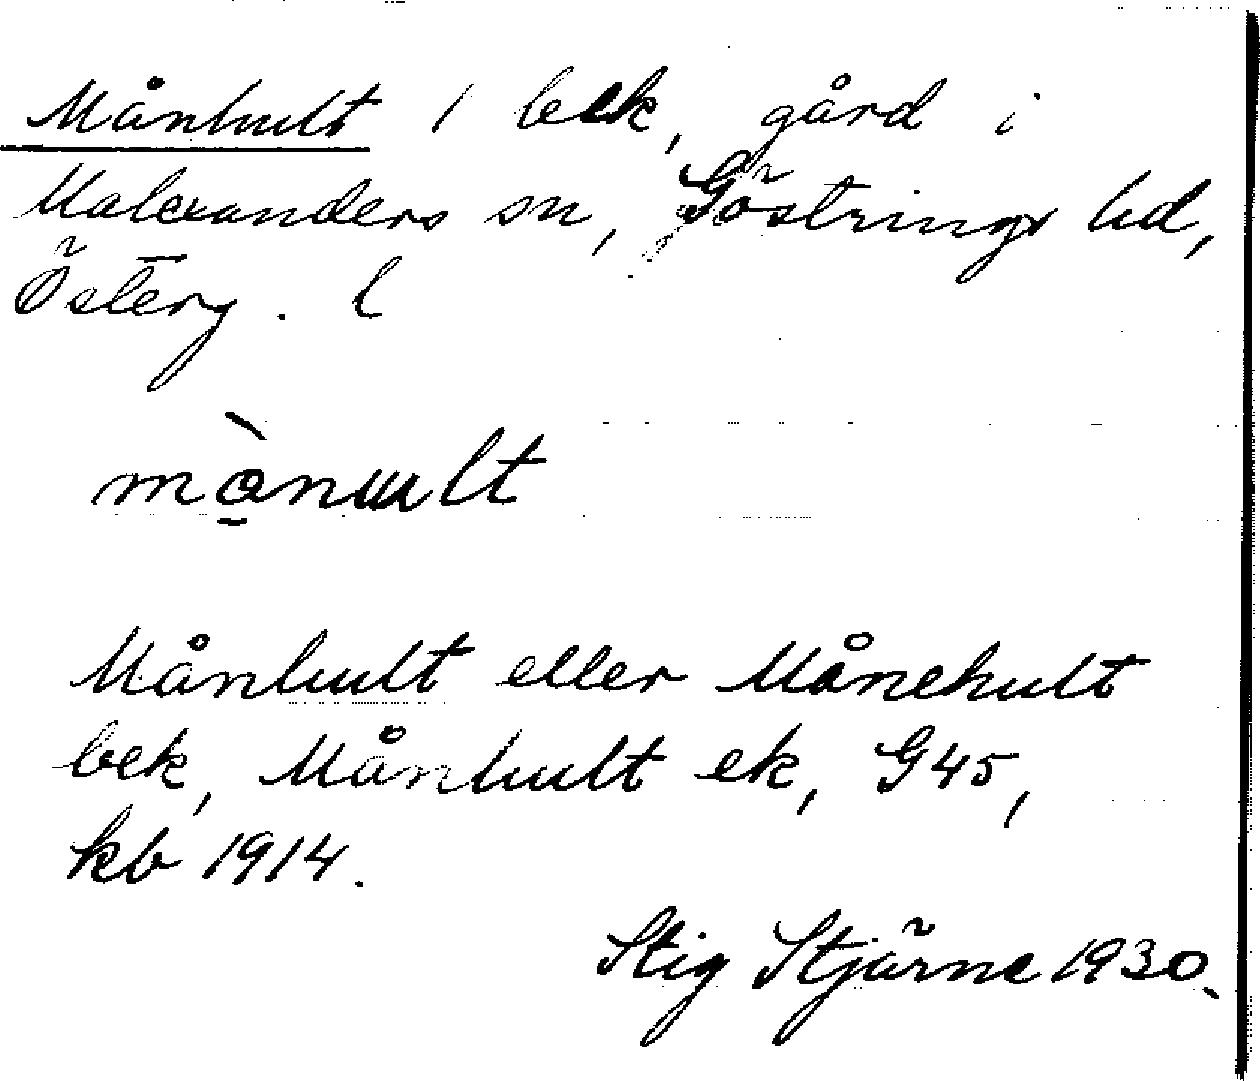 Månhult / bek, gård i
Malexanders sn, Göstrings hd,
Österg. l
mànult
Månhult eller Månehult
bek, Månhult ek, G45,
kb 1914.
Stig Stjärne 1930.